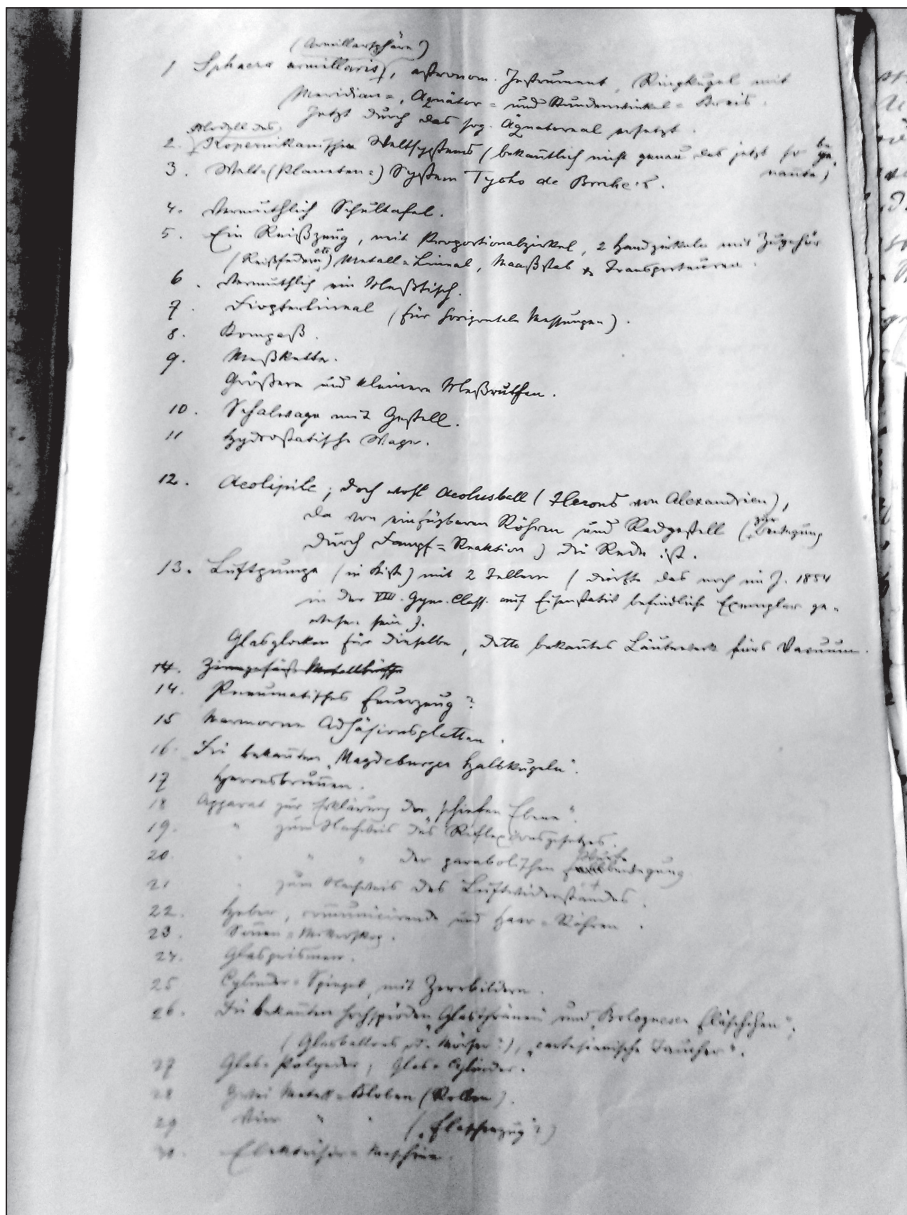 (Armillarsphäre)
1 Sphaera armillaris, astronom. Instrument, Ringkugel mit
Meridian=, Äquator= und Stundenwinkel=Kreis.
Jetzt durch das sog. Äquatoreal ersetzt.
Modell des
2. Kopernikanischen Weltsystems (bekanntlich nicht genau das jetzt so
nannte)
3. Welt=(Planeten=) System Tycho de Brahe's.
4. Vermuthlich Schultafel.
5. Ein Reißzeug, mit Proportionalzirkel, 2 Handzirkeln mit Zugehör
(Reißfedern etc) Metall=Lineal, Maaßstab & Transporteuren.
6. Vermuthlich ein Meßtisch.
7. Diopterlineal (für horizontale Messungen).
8. Kompaß.
9. Meßkette.
Größere und kleinere Meßruthen.
10. Schalwage mit Gestell.
11 Hydrostatische Wage.
12. Aeolipile; doch wohl Aeolusball (Herons von Alexandrien),
da von einfügbaren Röhren und Radgestell (zur Bewegung
durch Dampf=Reaktion) die Rede ist.
13. Luftpumpe (in Kiste) mit 2 Tellern (dürfte das noch im J. 1854
in der VIII. Gym. Class. auf Eisenstativ befindliche Exemplar ge-
wesen sein).
Glasglocken für dieselbe, detto bekanntes Läutewerk fürs Vacuum.
14.
14. Pneumatisches Feuerzeug?
15 Marmorne Adhäsionsplatten.
16. Die bekannten „Magdeburger Halbkugeln".
17 Heronsbrunnen.
18 Apparat zur Erklärung der „schiefen Ebene".
19. " zum Nachweis des Reflexionsgesetzes.
20. " " " der parabolischen Wurfbewegung
21 " zum Nachweis des Luftwiderstandes.
22. Heber, communicirende und Haar=Röhren.
23. Sonnen=Mikroskop.
24. Glasprismen.
25 Cylinder=Spiegel, mit Zerrbildern.
26. Die bekannten Glasthränen und „Bologneser Fläschchen",
(Glasballons od. „Mörser"?), „cartesianische Taucher".
27 Glas=Polyeder, Glas=Cylinder.
28 Zwei Metall=Kloben (Rollen).
29 Vier " " („Flaschenzug"?)
30. Elektrisir=Maschine.